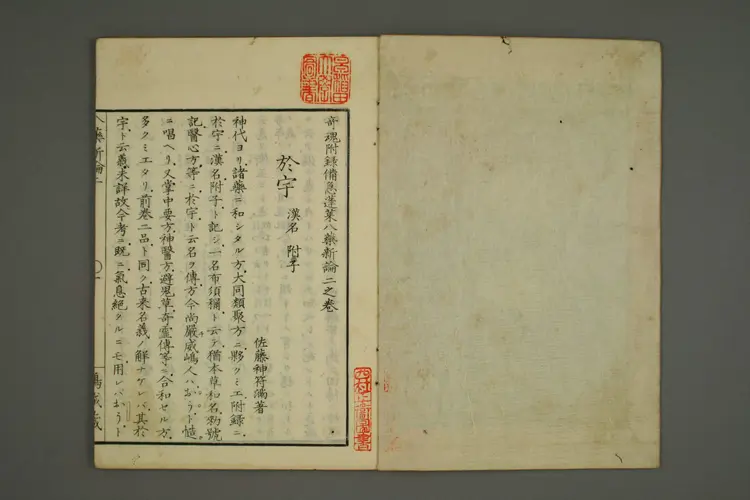 奇魂附録備急蓬莱八藥新論二之卷
佐藤神符滿著
於宇 漢名 附子
神代ヨリ諸藥ニ和シタル方大同類聚方ニ夥クミエ附録ニ
於宇ニ漢名附子ト記シ一名布須禰ト云フ猶本草和名
記醫心方等ニ於宇ト云名ヲ傳方今尚嚴威嶋人ハおうト
ニ唱ヘリ又掌中要方神醫方避鬼草奇靈傳等ニ合和セル方
多クミエタリ前卷二品ト同ク古来名義ノ解ナケレバ其於
宇ト云義未詳故今考ニ既ニ氣息絶タルニモ用レバおうト
八藥新論二